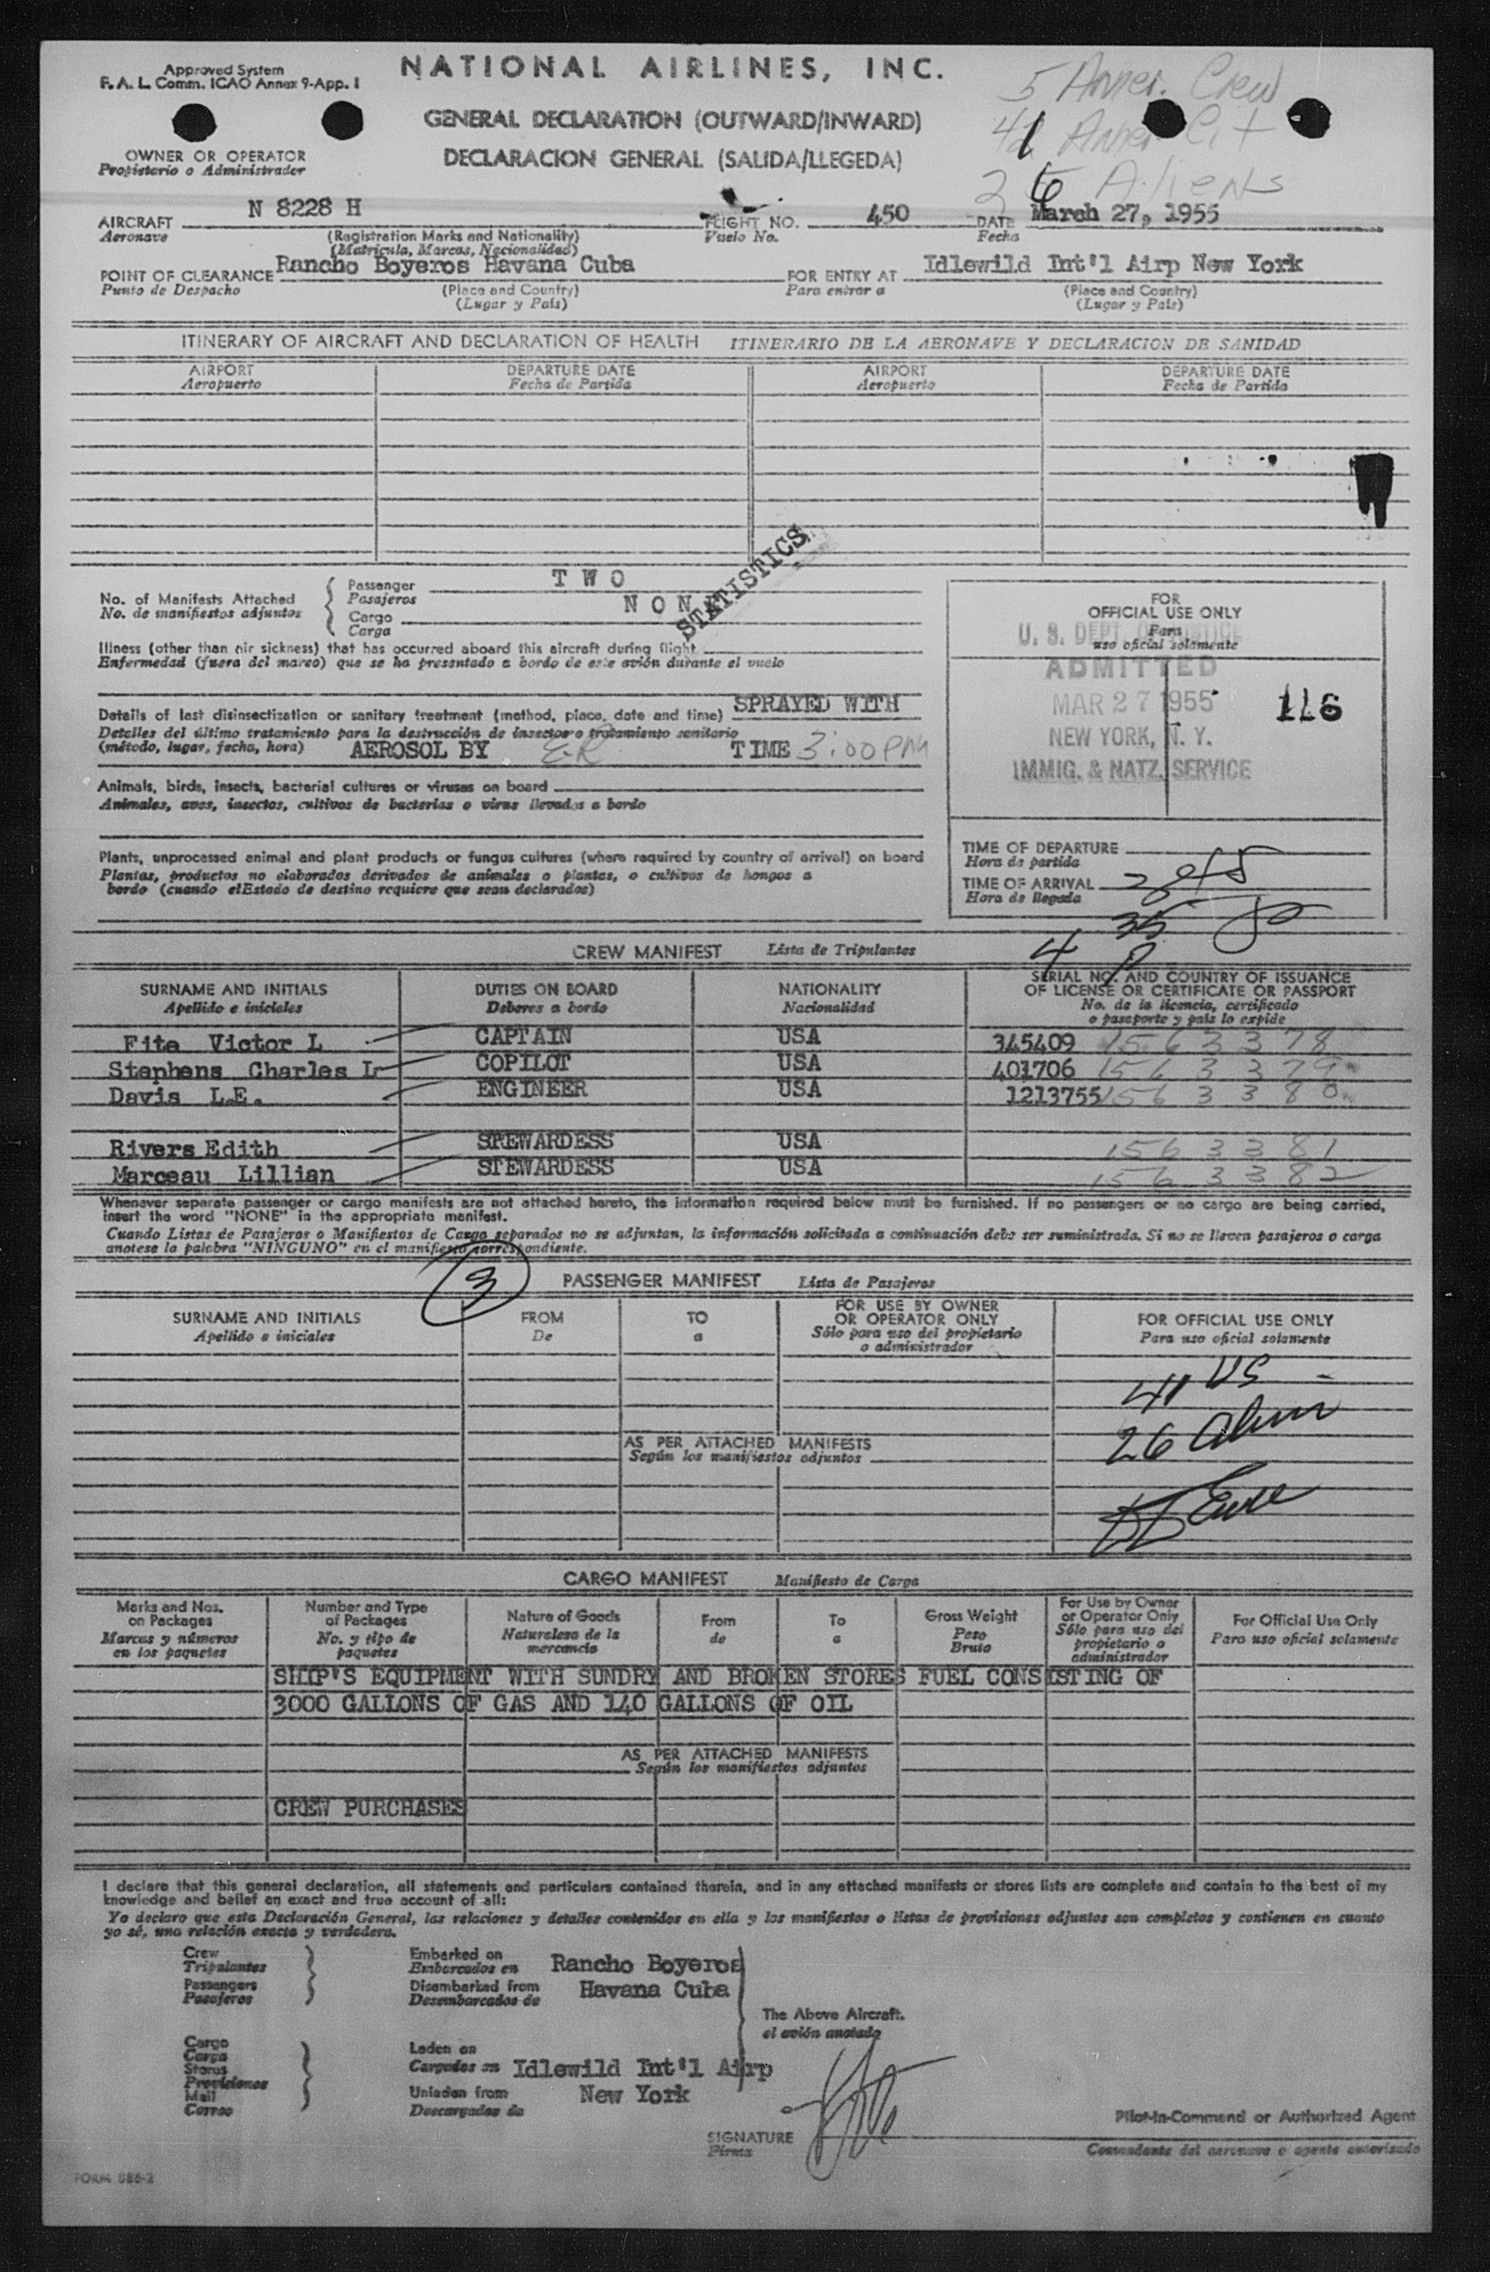 Approved System
F. A. L. Comm. ICAO Annex 9-App. 1
NATIONAL AIRLINES, INC.
5 Amer. Crew
GENERAL DECLARATION (OUTWARD/INWARD)
41 Amer Cit
DECLARACION GENERAL (SALIDA/LLEGEDA)
26 Aliens
OWNER OR OPERATOR
Propietario o Administrador
AIRCRAFT N 8228 H FLIGHT NO. 450 DATE March 27, 1955
Aeronave (Registration Marks and Nationality) Vuelo No. Fecha
(Matricula, Marcas, Nacionalidad)
POINT OF CLEARANCE Rancho Boyeros Havana Cuba FOR ENTRY AT Idlewild Int'l Airp New York
Punto de Despacho (Place and Country) Para entrar a (Place and Country)
(Lugar y País) (Lugar y País)
ITINERARY OF AIRCRAFT AND DECLARATION OF HEALTH ITINERARIO DE LA AERONAVE Y DECLARACION DE SANIDAD
AIRPORT DEPARTURE DATE AIRPORT DEPARTURE DATE
Aeropuerto Fecha de Partida Aeropuerto Fecha de Partida
STATISTICS
No. of Manifests Attached
No. de manifiestos adjuntos
Passenger T W O
Pasajeros
Cargo N O N
Carga
Illness (other than air sickness) that has occurred aboard this aircraft during flight
Enfermedad (fuera del mareo) que se ha presentado a bordo de este avión durante el vuelo
Details of last disinsectization or sanitary treatment (method, place, date and time) SPRAYED WITH
Detelles del último tratamiento para la destrucción de insectos o tratamiento sanitario
(método, lugar, fecha, hora) AEROSOL BY TIME 3:00 PM
Animals, birds, insects, bacterial cultures or viruses on board
Animales, aves, insectos, cultivos de bacterias o virus llevados a bordo
Plants, unprocessed animal and plant products or fungus cultures (where required by country of arrival) on board
Plantas, productos no elaborados derivados de animales o plantas, o cultivos de hongos a
bordo (cuando elEstado de destino requiere que sean declarados)
FOR
OFFICIAL USE ONLY
Para
uso oficial solamente
U. S. DEPT. OF JUSTICE
ADMITTED
MAR 27 1955 116
NEW YORK, N. Y.
IMMIG. & NATZ. SERVICE
TIME OF DEPARTURE
Hora de partida
TIME OF ARRIVAL
Hora de llegada
CREW MANIFEST Lista de Tripulantes
SURNAME AND INITIALS DUTIES ON BOARD NATIONALITY SERIAL NO. AND COUNTRY OF ISSUANCE
OF LICENSE OR CERTIFICATE OR PASSPORT
Apellido e iniciales Deberes a bordo Nacionalidad No. de la licencia, certificado
o pasaporte y país lo expide
Fite Victor L CAPTAIN USA 345409 1563378
Stephens Charles L COPILOT USA 401706 1563379
Davis L.E. ENGINEER USA 1213755 1563380
Rivers Edith STEWARDESS USA 1563381
Marceau Lillian STEWARDESS USA 1563382
Whenever separate passenger or cargo manifests are not attached hereto, the information required below must be furnished. If no passengers or no cargo are being carried,
insert the word "NONE" in the appropriate manifest.
Cuando Listas de Pasajeros o Manifiestos de Carga separados no se adjuntan, la información solicitada a continuación debe ser suministrada. Si no se lleven pasajeros o carga
anotese la palabra "NINGUNO" en el manifiesto correspondiente.
3
PASSENGER MANIFEST Lista de Pasajeros
SURNAME AND INITIALS FROM TO FOR USE BY OWNER
OR OPERATOR ONLY FOR OFFICIAL USE ONLY
Apellido e iniciales De a Sólo para uso del propietario
o administrador Para uso oficial solamente
41 US
26 Alien
AS PER ATTACHED MANIFESTS
Según los manifiestos adjuntos
CARGO MANIFEST Manifiesto de Carga
Marks and Nos.
on Packages
Marcas y números
en los paquetes
Number and Type
of Packages
No. y tipo de
paquetes
Nature of Goods
Naturaleza de la
mercancia
From
de
To
a
Gross Weight
Peso
Bruto
For Use by Owner
or Operator Only
Sólo para uso del
propietario o
administrador
For Official Use Only
Para uso oficial solamente
SHIP'S EQUIPMENT WITH SUNDRY AND BROKEN STORES FUEL CONSISTING OF
3000 GALLONS OF GAS AND 140 GALLONS OF OIL
AS PER ATTACHED MANIFESTS
Según los manifiestos adjuntos
CREW PURCHASES
I declare that this general declaration, all statements and particulars contained therein, and in any attached manifests or stores lists are complete and contain to the best of my
knowledge and belief an exact and true account of all:
Yo declaro que esta Declaración General, las relaciones y detalles contenidos en ella y los manifiestos o listas de provisiones adjuntos son completos y contienen en cuanto
yo sé, una relación exacta y verdadera.
Crew
Tripulantes
Passengers
Pasajeros
Embarked on
Embarcados en Rancho Boyeros
Disembarked from Havana Cuba
Desembarcados de
The Above Aircraft.
el avión anotado
Cargo
Carga
Stores
Provisiones
Mail
Correo
Laden on
Cargados en Idlewild Int'l Airp
Unladen from New York
Descargados de
SIGNATURE
Firma
Pilot-In-Command or Authorized Agent
Comandante del aeronave o agente autorizado
FORM 886-2